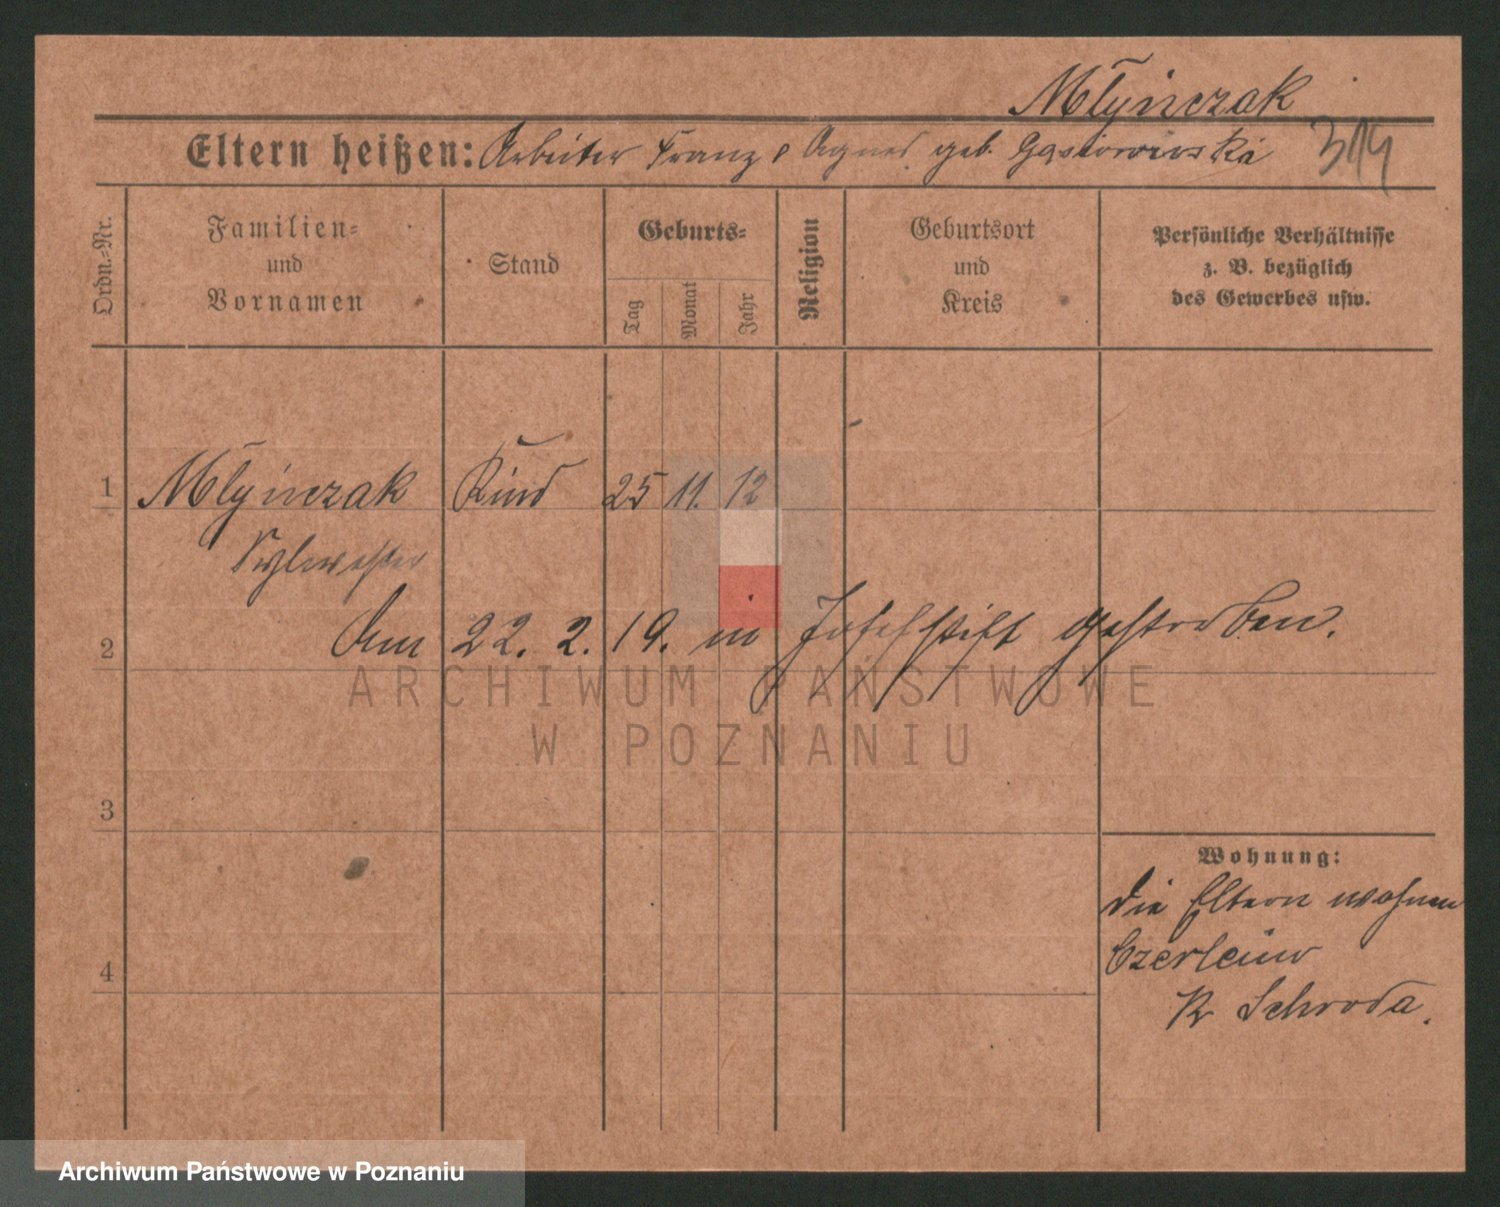 Młyńczak
Eltern heißen: Arbeiter Franz & Agnes geb. Gąsiorowska
Ordn.-Nr.
Familien-
und
Vornamen
Stand
Geburts-
Tag
Monat
Jahr
Religion
Geburtsort
und
Kreis
Persönliche Verhältnisse
z. B. bezüglich
des Gewerbes usw.
1 Młyńczak Kind 25 11. 12
Sylwester
2 Am 22. 2. 19. in Josefstift gestorben.
ARCHIWUM PAŃSTWOWE
W POZNANIU
3
Wohnung:
die Eltern wohnen
Czerleino
Kr Schroda.
4
Archiwum Państwowe w Poznaniu